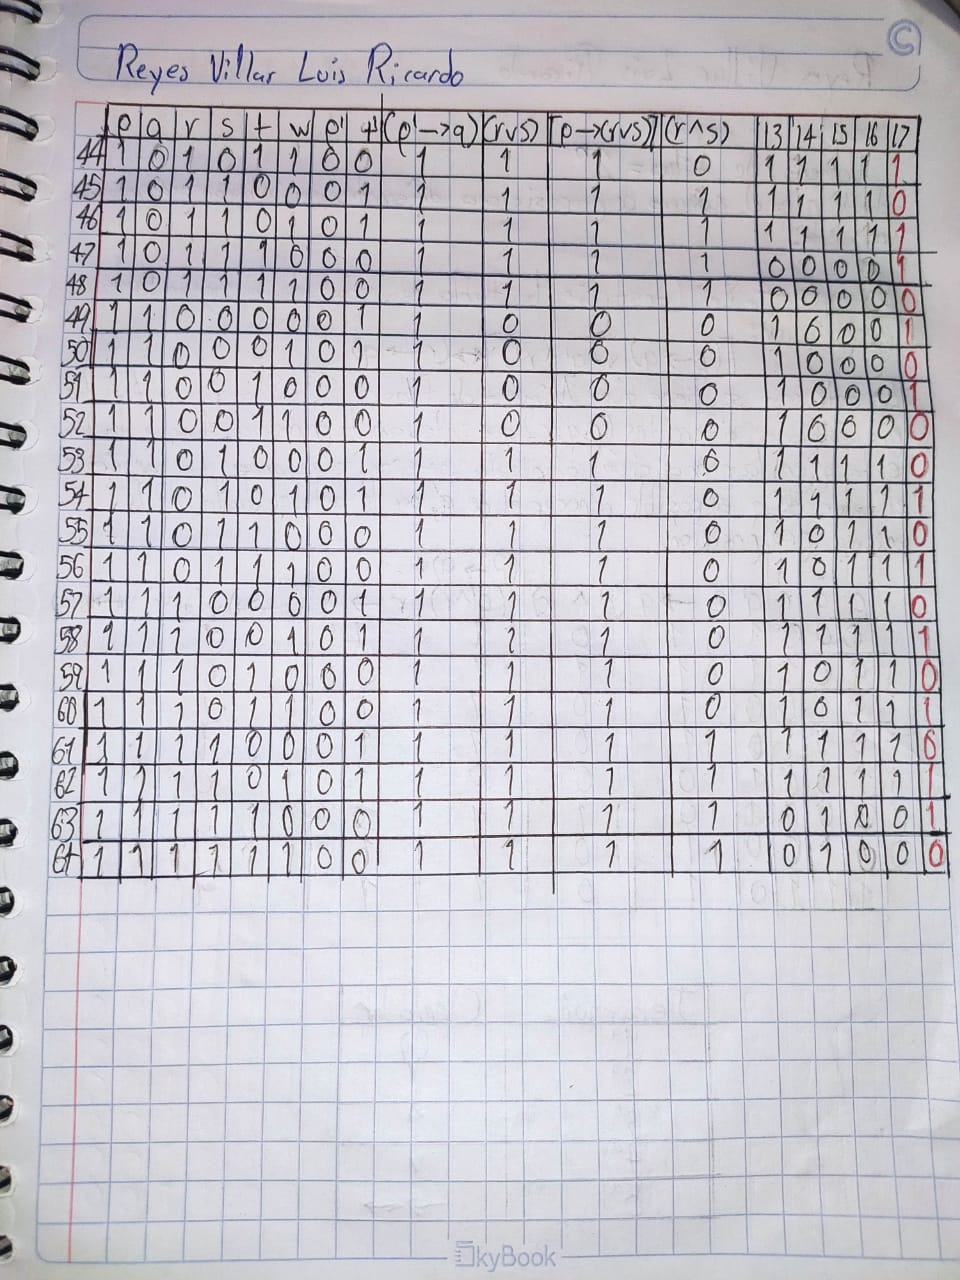 C
Reyes Villar Luis Ricardo
p q r s t w p' t' (p'→q) (r∨s) [p→(r∨s)] (r∧s) 13 14 15 16 17
44 1 0 1 0 1 1 0 0 1 1 1 0 1 1 1 1 1
45 1 0 1 1 0 0 0 1 1 1 1 1 1 1 1 1 0
46 1 0 1 1 0 1 0 1 1 1 1 1 1 1 1 1 1
47 1 0 1 1 1 0 0 0 1 1 1 1 0 0 0 0 1
48 1 0 1 1 1 1 0 0 1 1 1 1 0 0 0 0 0
49 1 1 0 0 0 0 0 1 1 0 0 0 1 0 0 0 1
50 1 1 0 0 0 1 0 1 1 0 0 0 1 0 0 0 0
51 1 1 0 0 1 0 0 0 1 0 0 0 1 0 0 0 1
52 1 1 0 0 1 1 0 0 1 0 0 0 1 0 0 0 0
53 1 1 0 1 0 0 0 1 1 1 1 0 1 1 1 1 0
54 1 1 0 1 0 1 0 1 1 1 1 0 1 1 1 1 1
55 1 1 0 1 1 0 0 0 1 1 1 0 1 0 1 1 0
56 1 1 0 1 1 1 0 0 1 1 1 0 1 0 1 1 1
57 1 1 1 0 0 0 0 1 1 1 1 0 1 1 1 1 0
58 1 1 1 0 0 1 0 1 1 1 1 0 1 1 1 1 1
59 1 1 1 0 1 0 0 0 1 1 1 0 1 0 1 1 0
60 1 1 1 0 1 1 0 0 1 1 1 0 1 0 1 1 1
61 1 1 1 1 0 0 0 1 1 1 1 1 1 1 1 1 0
62 1 1 1 1 0 1 0 1 1 1 1 1 1 1 1 1 1
63 1 1 1 1 1 0 0 0 1 1 1 1 0 1 0 0 1
64 1 1 1 1 1 1 0 0 1 1 1 1 0 1 0 0 0
SkyBook